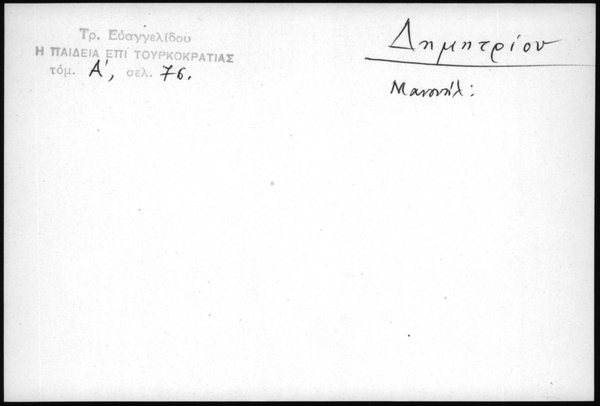 Τρ. Εὐαγγελίδου
Η ΠΑΙΔΕΙΑ ΕΠΙ ΤΟΥΡΚΟΚΡΑΤΙΑΣ
τόμ. Α', σελ. 76.
Δημητρίου
Μανουήλ: